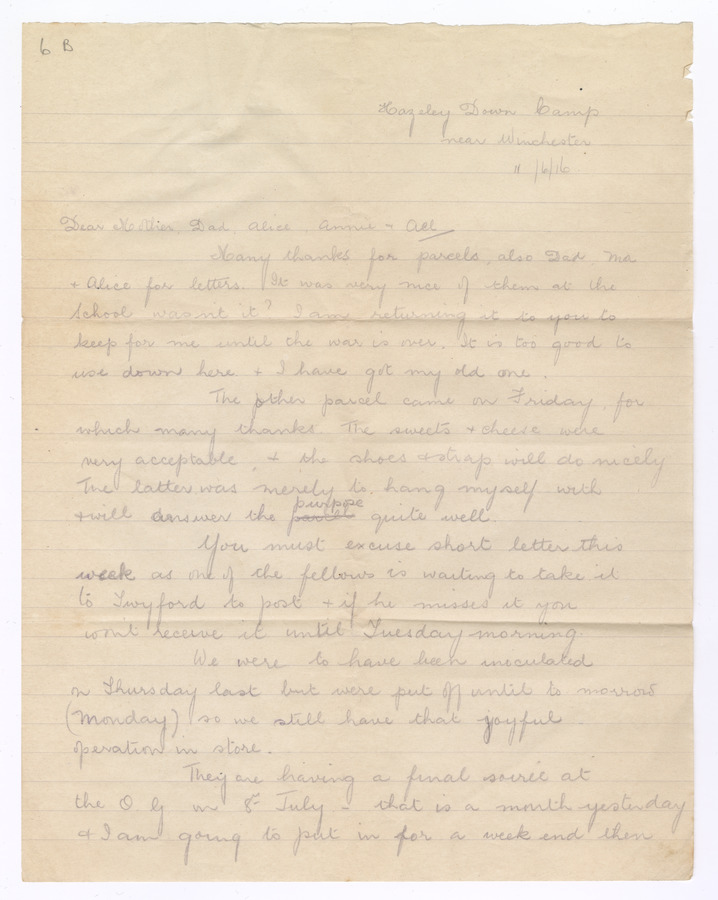 6 B
Hazeley Down Camp
near Winchester
11/6/16
Dear Mother, Dad, Alice, Annie & All
Many thanks for parcels, also Dad, Ma
& Alice for letters. It was very nice of them at the
School wasn't it? I am returning it to you to
keep for me until the war is over. It is too good to
use down here & I have got my old one.
The other parcel came on Friday, for
which many thanks. The sweets & cheese were
very acceptable, & the shoes & strap will do nicely
The latter was merely to hang myself with
& will answer the parcel purpose quite well.
You must excuse short letter this
week as one of the fellows is waiting to take it
to Twyford to post & if he misses it you
won't receive it until Tuesday morning
We were to have been inoculated
on Thursday last but were put off until to morrow
(Monday) so we still have that joyful
operation in store.
They are having a final soirée at
the O. G on 8th July - that is a month yesterday
& I am going to put in for a week end then